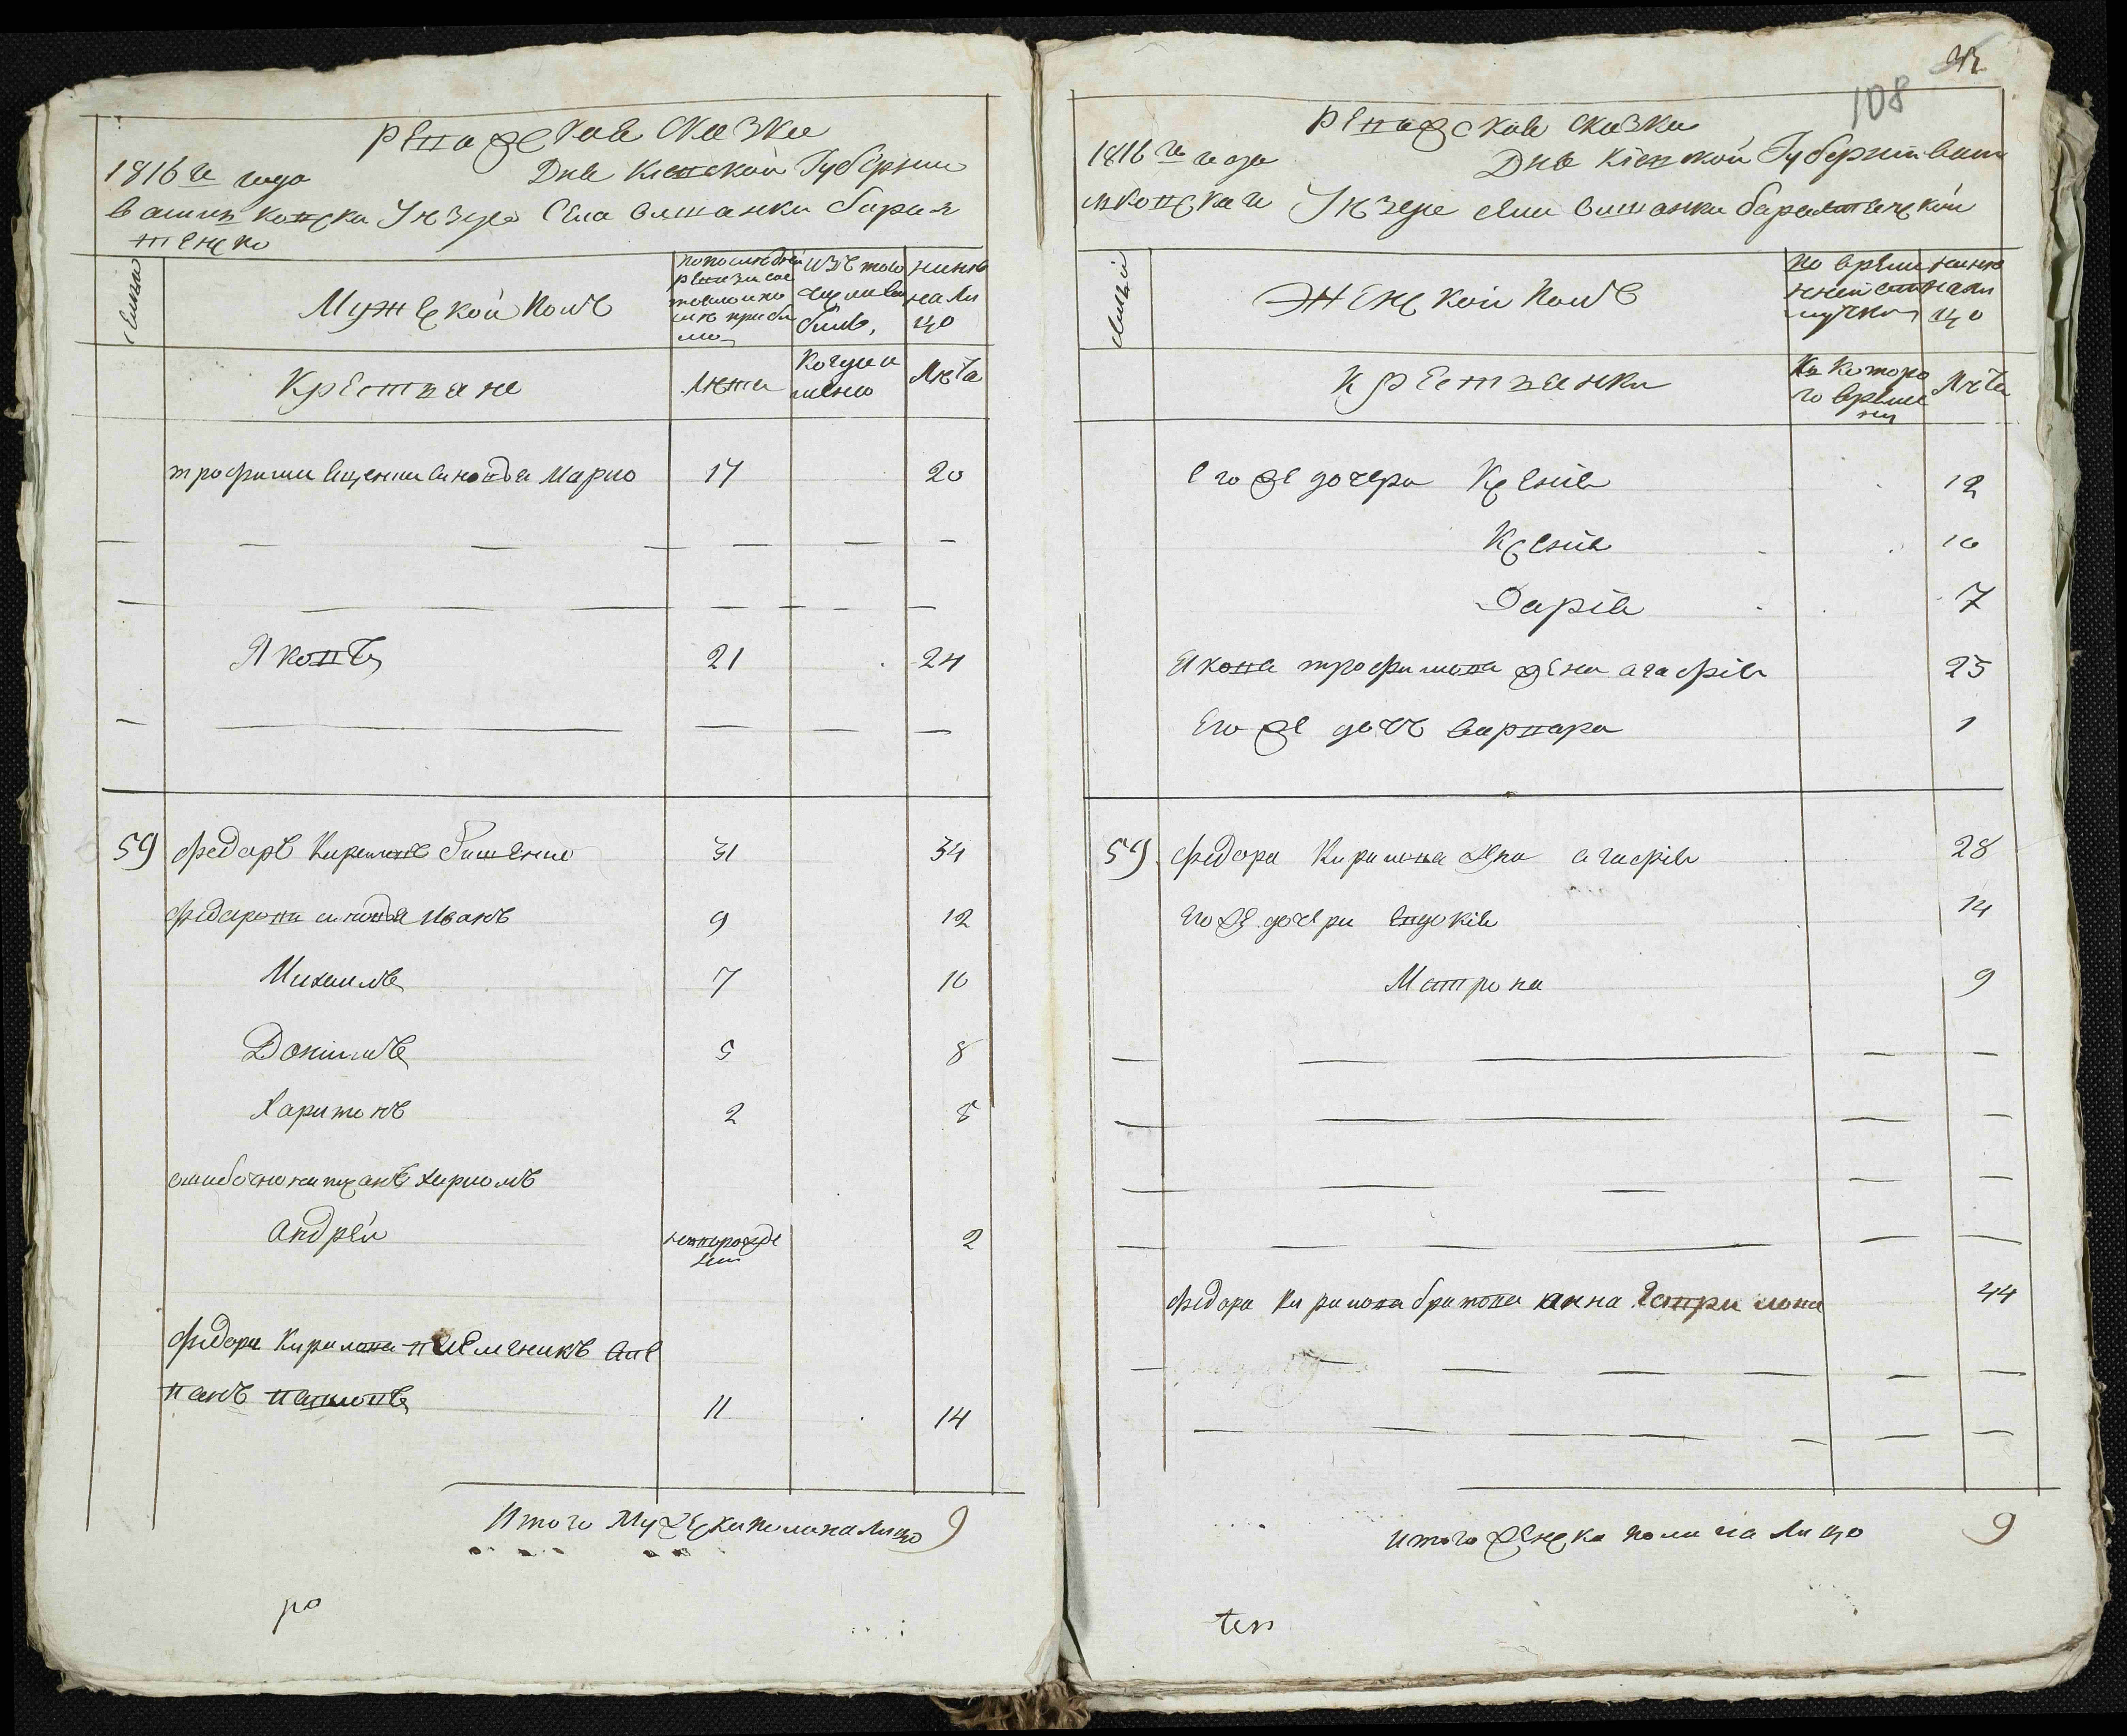 Ревижская сказка
1816 го года Дня Киевской Губернии
васил ковска Уезда Села Вишанки бараж
тенско
семьи
Мужеской полъ
попоследней
ревизи сос
тоялоипо
сле прибы
ло
изъ того
число вы
было,
ныне
на ли
цо
Крестьяне
лета
Когда и
менно
лета
трофима сынова Марко 17 20
Яковъ 21 24
59 Федоръ Кириловъ 31 34
Федорова сыновья Иванъ 9 12
Михаилъ 7 10
Данiилъ 5 8
Харитонъ 2 5
ошибочно написанъ
Андрей новорожде 2
Федора Кирилова племеникъ Сте
панъ Павловъ 11 14
Итого Мужеска пола на лицо 9
ро
108
Ревижская сказка
1816 го года Дня Киевской Губернии Васи
лковскаго Уезда села Вишанки баражтянской
семьи
Женской полъ
во време
нной от
лучки
ныне
нали
цо
Крестьянки
Из которо
го време
ни
лета
Его же дочери Ксения 12
Ксения 10
Дарiя 7
Якова трофимова жена агафiя 25
Его же дочь варвара 1
59 Федора Кирилова жена агафiя 28
Его же дочери Евдокiя 14
Матрона 9
Федора Кирилова братова анна 44
итого женска пола на лицо 9